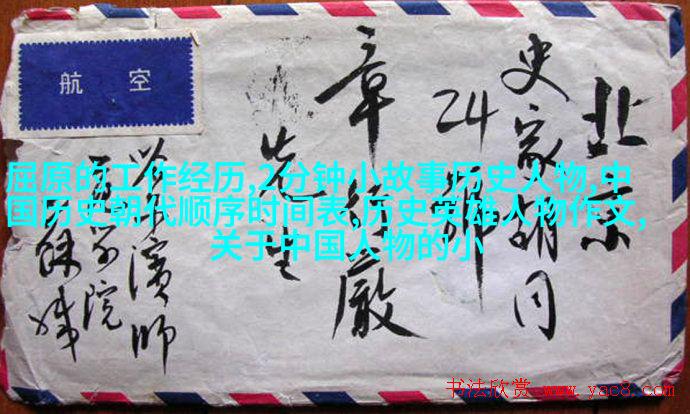 航空
北京
史家胡同
24號
章行嚴
先生
屈原的工作经历,2分钟小故事历史人物,中
国历史朝代顺序时间表,历史英雄人物作文,
关于中国人物的小
书法欣赏 www.yac8.com